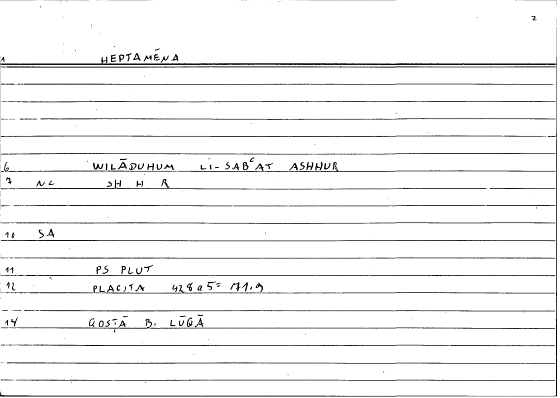 2
1 HEPTAMĒNA
6 WILĀDUHUM LI-SABʿAT ASHHUR
7 NC SH H R
10 SA
11 PS PLUT
12 PLACITA 428a5= 171.9
14 QOSṬĀ B. LŪQĀ